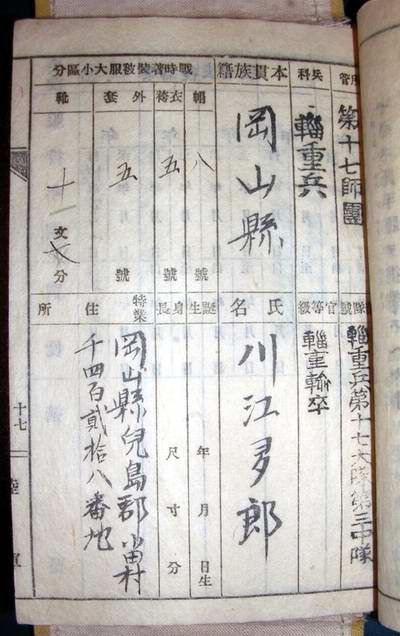 所管
第十七師團
兵科
輜重兵
本貫族籍
岡山縣
戰時著裝被服大小區分
帽
八
號
衣袴
五
號
外套
五
號
靴
十
文
分
隊號
輜重兵第十七大隊第三中隊
官等級
輜重輸卒
氏名
川江多郎
誕生
年月日生
身長
尺寸分
特業
住所
岡山縣兒島郡
村
千四百貳拾八番地
十七
陸